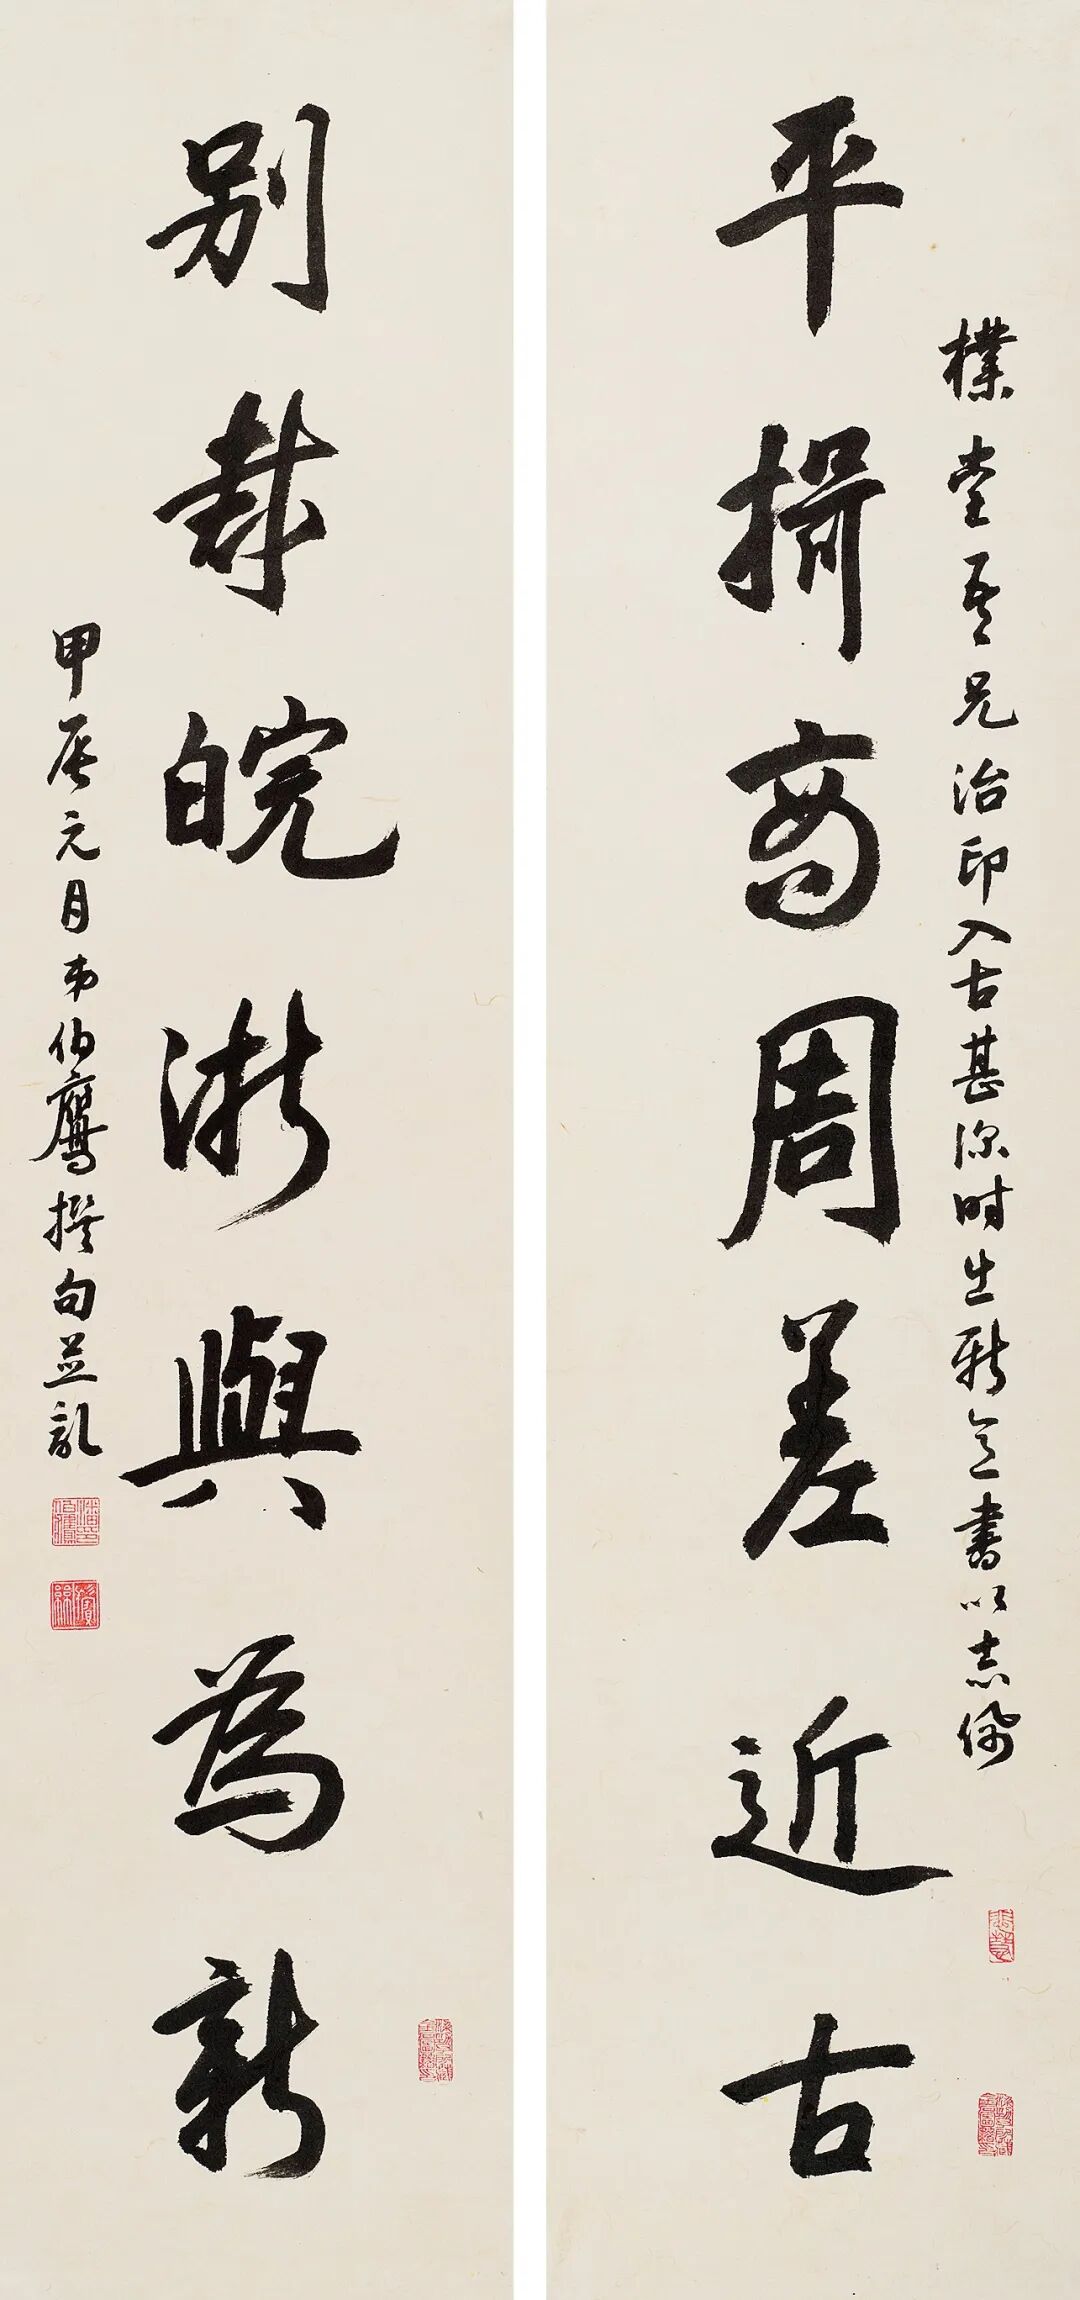 樸堂吾兄治印入古甚深时出新意書以志佩
平揖商周差近古
别裁皖浙與為新
甲辰元月弟伯鷹撰句並記